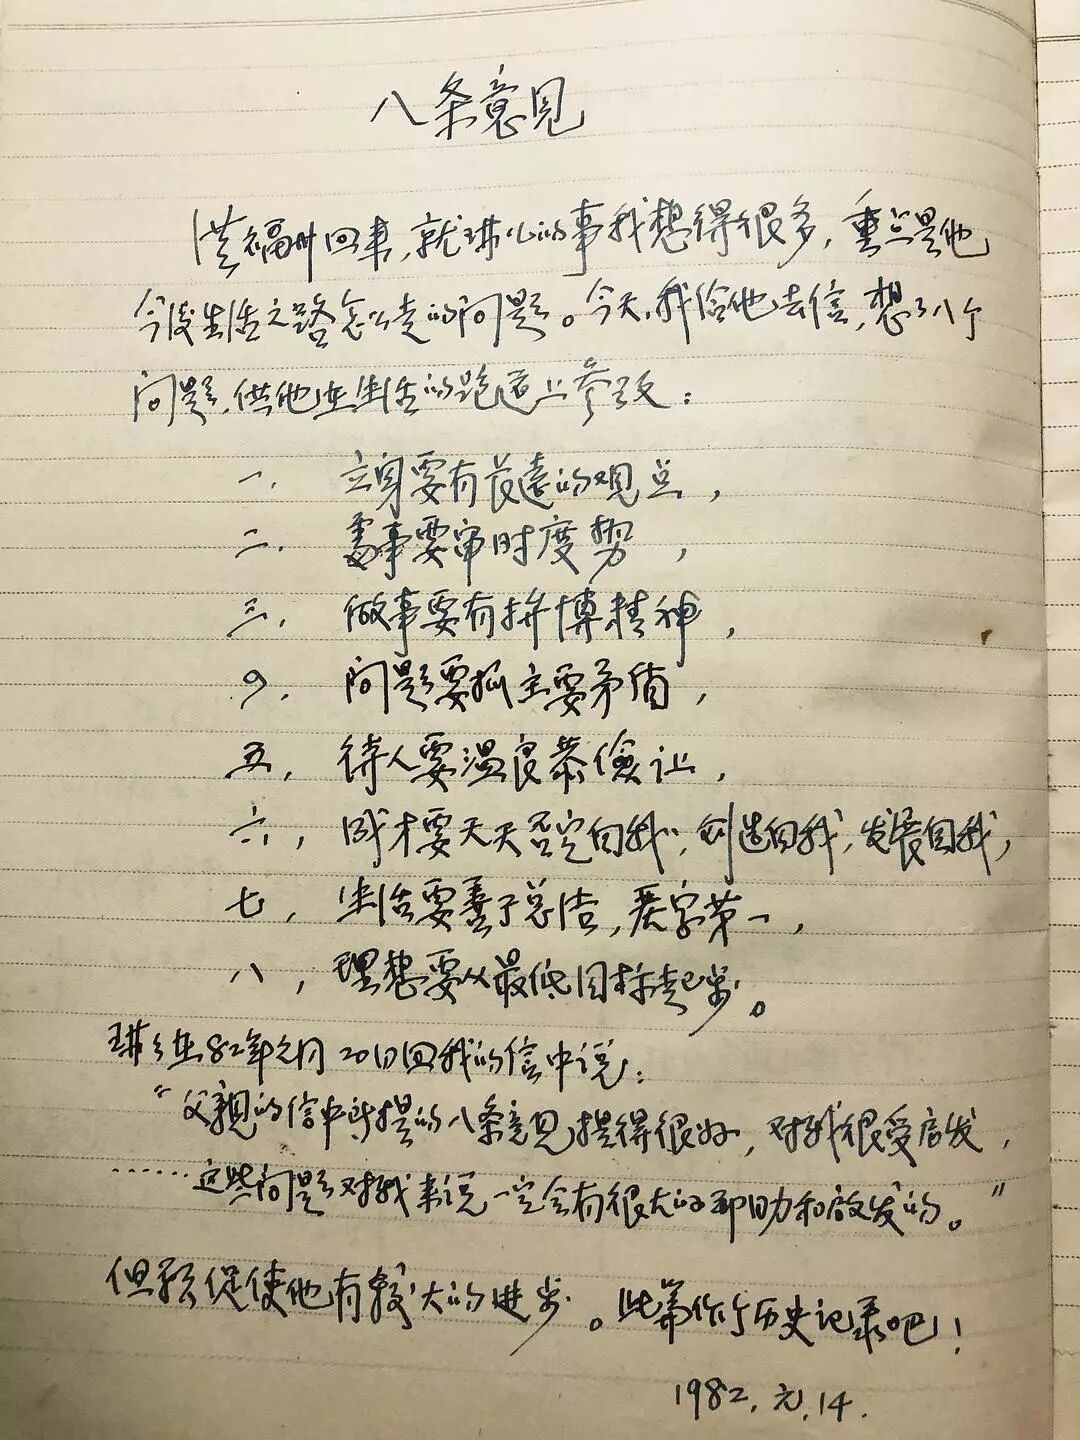 八条意见
福州回来,就琳儿的事我想得很多,重点是他
今后生活之路怎么走的问题。今天,我给他去信,想了八个
问题,供他在生活的跑道上参改:
一. 立身要有长远的观点,
二. 處事要审时度势,
三. 做事要有拼博精神,
四. 问题要抓主要矛盾,
五, 待人要温良恭儉让,
六, 成才要天天否定自我,创造自我,发展自我,
七, 生活要善于总结,严字第一,
八, 理想要从最低目标起步。
琳儿在82年元月20日回我的信中说:
"父親的信中所提的八条意见提得很好,对我很受启发,
……这些问题对我来说一定会有很大的帮助和啟发的。"
但愿促使他有较大的进步。此篇作个历史记录吧!
1982.元.14.